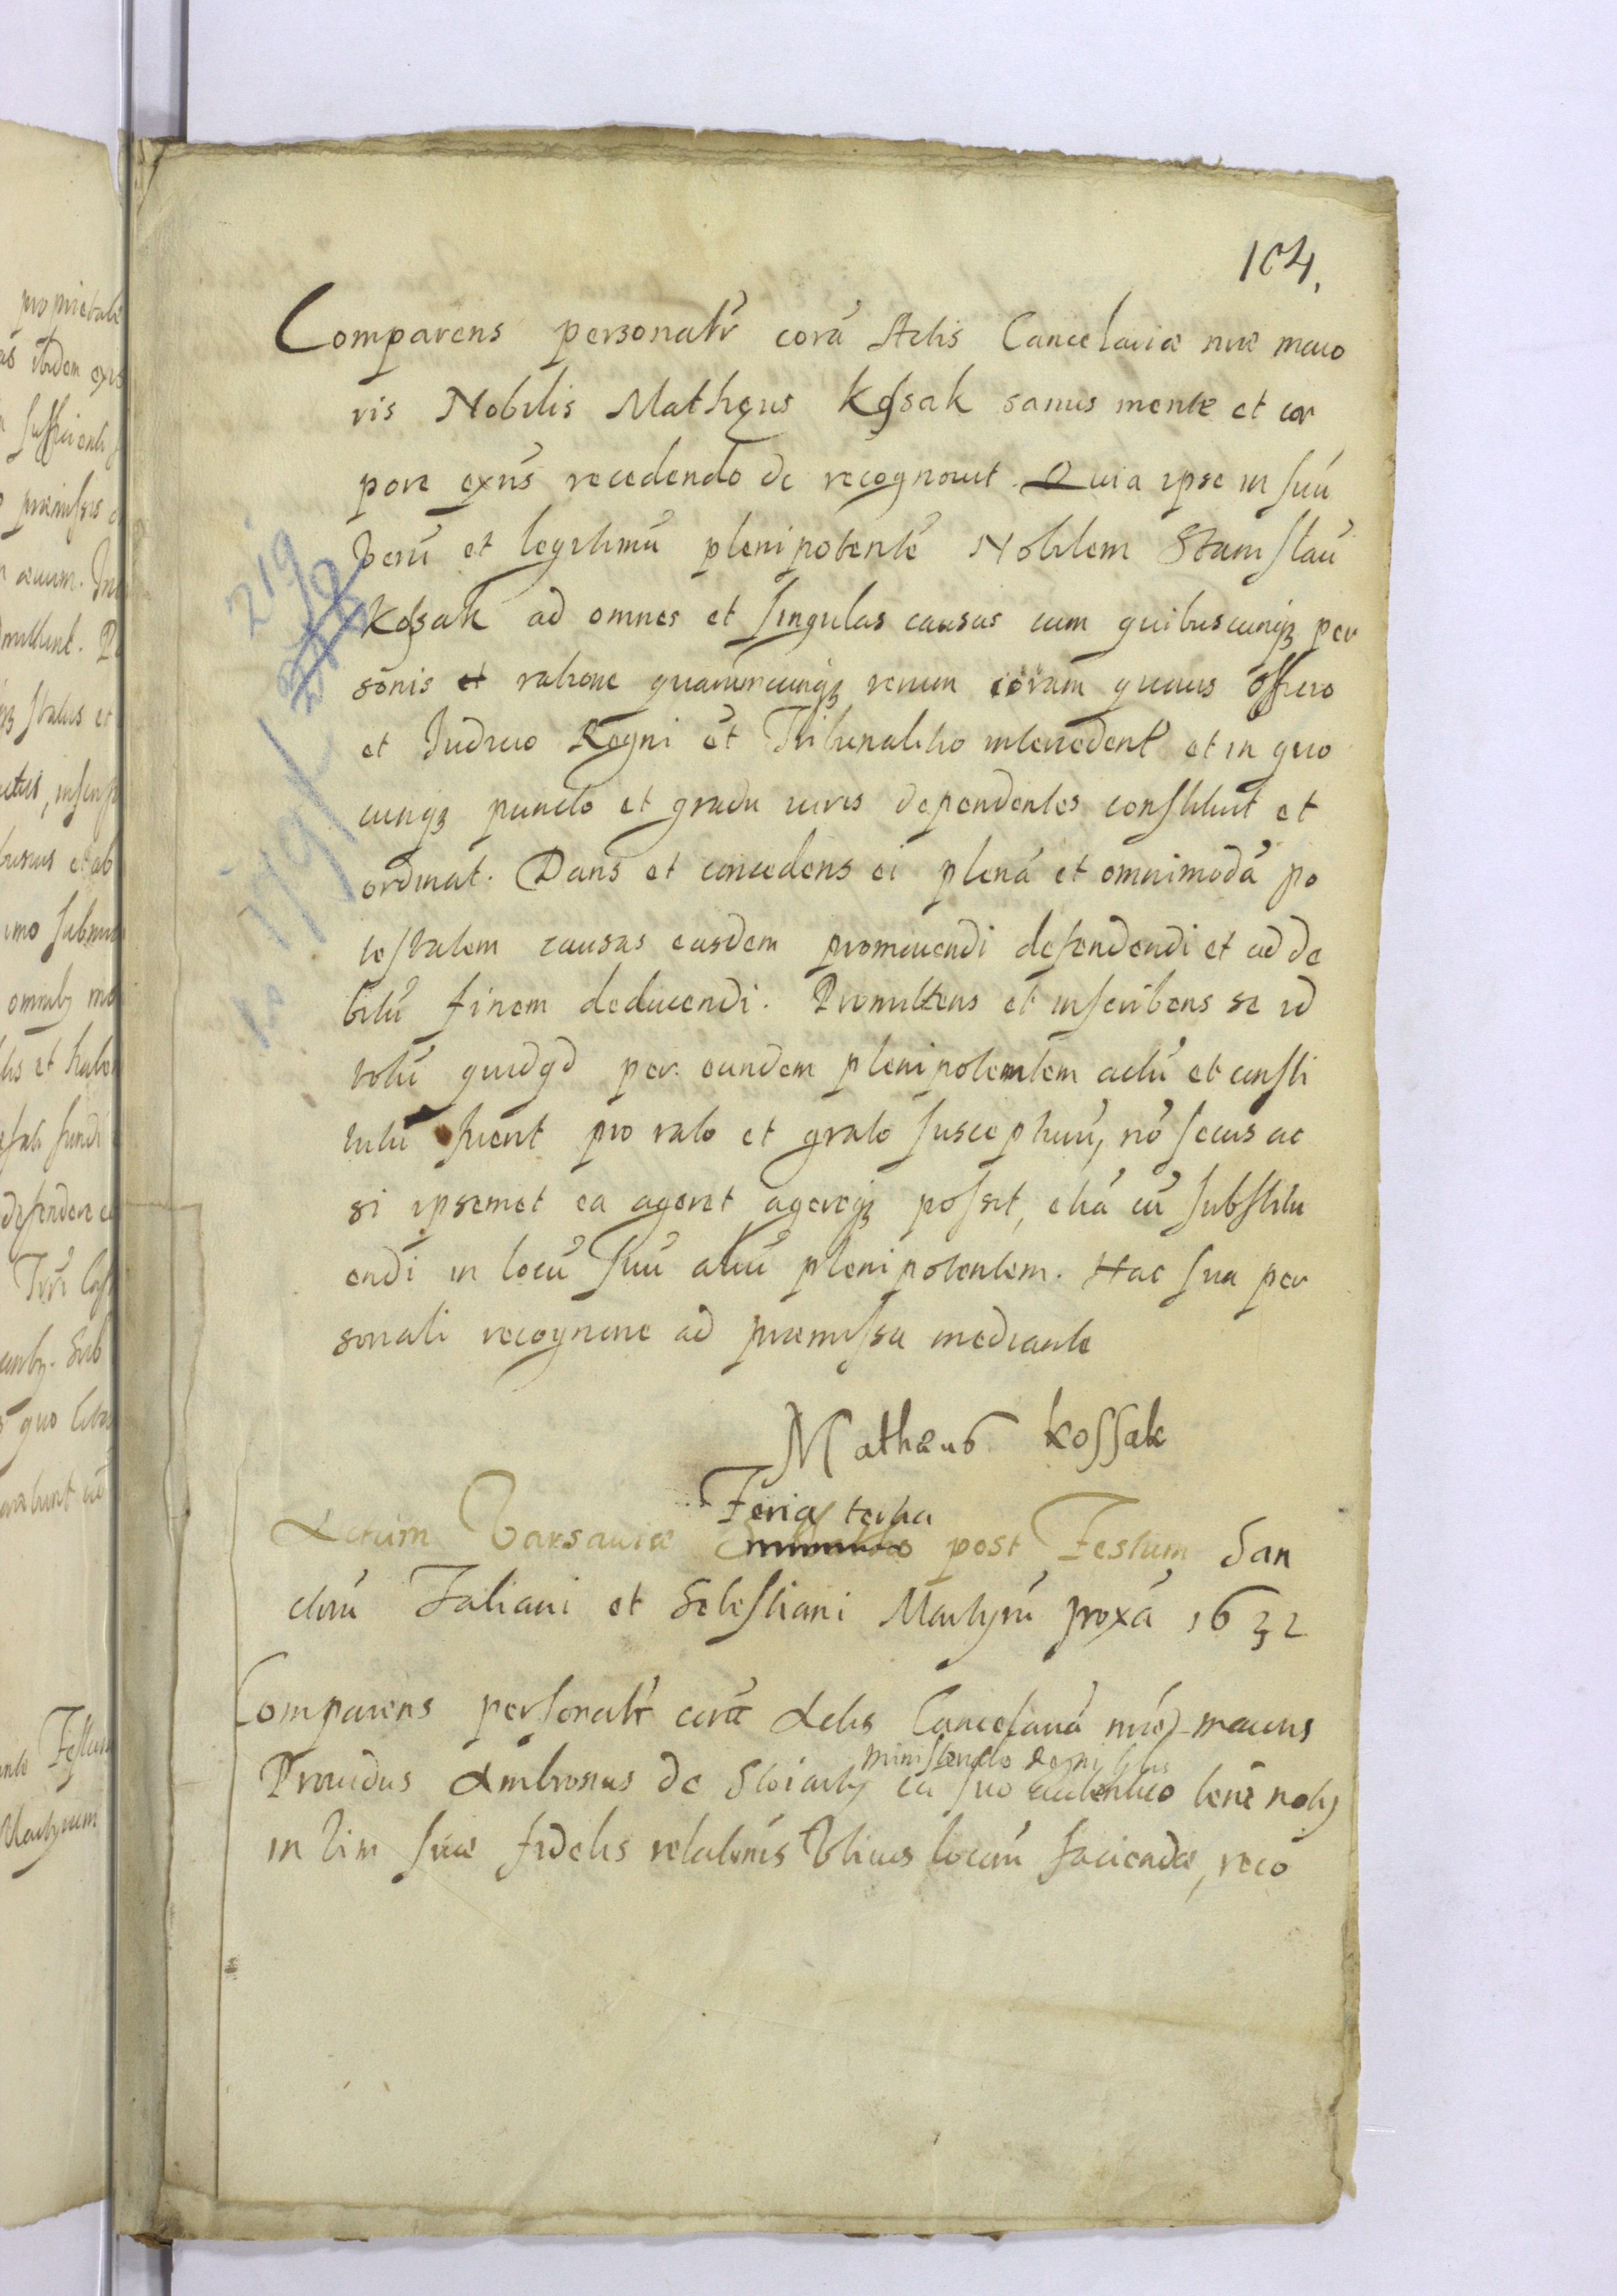 104.
Comparens personalr̃ corã Actis Cancelariæ nræ maio
ris Nobilis Mathęus Kossak sanus mente et cor
pore exñs recedendo de recognouit. Quia ipse in suũ
verũ et legitimũ plenipotentẽ Nobilem Stanislaũ
Kossak ad omnes et singulas causas cum quibuscunqз per
sonis et ratione quarumcunqз rerum coram quouis officio
et Iudicio Regni et Tribunalitio intercedent et in quo
cunqз puncto et gradu iuris dependentes constituit et
ordinat. Dans et concedens ei plenã et omnimodã po
testatem causas easdem promouendi defendendi et ad de
bitũ finem deducendi. Promittens et inscribens se id
totũ quidqd per eundem plenipotentem actũ et consti
tutũ fuerit pro rato et grato suscepturũ, nõ secus ac
si ipsemet ea ageret agereqз possit, etiã cũ substitu
endi in locũ suũ aliũ plenipotentem. Hac sua per
sonali recognõne ad præmissa mediante
Mathæus Kossak
Feria tertia
Actum Varsauiæ post Festum San
ctorũ Fabiani et Sebestiani Martyrũ proxã 1632
Comparens personalr̃ corã Actis Cancelariã maioris
Prouidus Ambrosius de
ministerialis Regni
suo autentico bene
in vim suæ fidelis relationis facienda, reco
219